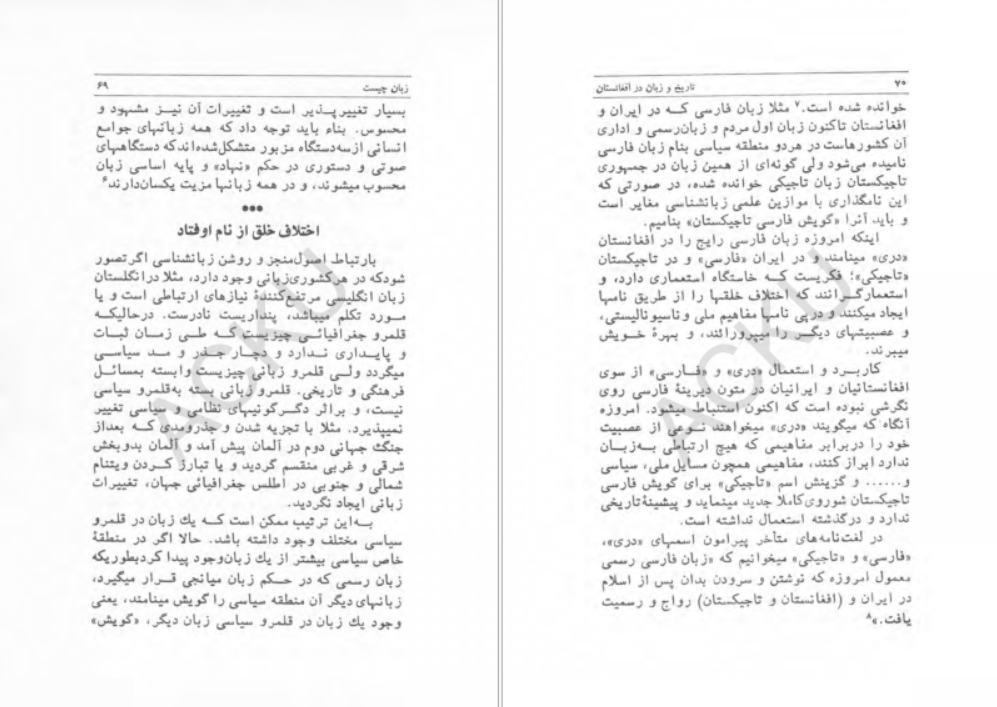 زبان چیست ۶۹
بسیار تغییرپذیر است و تغییرات آن نیـز مشهود و
محسوس. بناء باید توجه داد که همه زبانهای جوامع
انسانی ازسه‌دستگاه مزبور متشکل‌شده‌اندکه دستگاههای
صوتی و دستوری در حکم «نهاد» و پایه اساسی زبان
محسوب میشوند، و در همه زبانها مزیت یکسان‌دارند۶
•••
اختلاف خلق از نام اوفتاد
بارتباط اصول‌منجز و روشن زبانشناسی اگر تصور
شودکه در هرکشوری‌زبانی وجود دارد، مثلا درانگلستان
زبان انگلیسی مرتفع‌کنندهٔ نیازهای ارتباطی است و یا
مـورد تکلم میباشد، پنداریست نادرست. درحالیکـه
قلمرو جغرافیائـی چیزیست کـه طـی زمـان ثبـات
و پایـداری نـدارد و دچـار جـذر و مـد سیاسـی
میگردد ولـی قلمرو زبانی چیزیست وابسته بمسائـل
فرهنگی و تاریخی. قلمرو زبانی بسته به‌قلمرو سیاسی
نیست، و براثر دگـرگونیهای نظامی و سیاسی تغییر
نمیپذیرد. مثلا با تجزیه شدن و جذرومدی کـه بعداز
جنگ جهانی دوم در آلمان پیش آمد و آلمان بدوبخش
شرقی و غربی منقسم گردید و یا تبارز کـردن ویتنام
شمالی و جنوبی در اطلس جغرافیائی جهان، تغییرات
زبانی ایجاد نگردید.
بـه‌این ترتیب ممکن است کـه یك زبان در قلمرو
سیاسی مختلف وجود داشته باشد. حالا اگر در منطقهٔ
خاص سیاسی بیشتر از یك زبان‌وجود پیدا کردبطوریکه
زبان رسمی که در حـکم زبان میانجی قـرار میگیرد،
زبانهای دیگر آن منطقه سیاسی را گویش مینامند، یعنی
وجود یك زبان در قلمرو سیاسی زبان دیگر، «گویش»
۷۰ تاریخ و زبان در افغانستان
خوانده شده است.۷ مثلا زبان فارسی کـه در ایران و
افغانستان تاکنون زبان اول مردم و زبان‌رسمی و اداری
آن کشورهاست در هردو منطقه سیاسی بنام زبان فارسی
نامیده می‌شود ولی گونه‌ای از همین زبان در جمهوری
تاجیکستان زبان تاجیکی خوانده شده، در صورتی که
این نامگذاری با موازین علمی زبانشناسی مغایر است
و باید آنرا «گویش فارسی تاجیکستان» بنامیم.
اینکه امروزه زبان فارسی رایج را در افغانستان
«دری» مینامند و در ایران «فارسی» و در تاجیکستان
«تاجیکی»؛ فکریست کـه خاستگاه استعماری دارد، و
استعمارگـرانند که اختلاف خلقها را از طریق نامها
ایجاد میکنند و درپی نامها مفاهیم ملی و ناسیونالیستی،
و عصبیتهای دیگـر را میپرورانند، و بهرهٔ خـویش
میبرند.
کاربـرد و استعمال «دری» و «فـارسی» از سوی
افغانستانیان و ایرانیان در متون دیرینهٔ فارسی روی
نگرشی نبوده است که اکنون استنباط میشود. امروزه
آنگاه که میگویند «دری» میخواهند نـوعی از عصبیت
خود را دربرابر مفاهیمی که هیچ ارتباطی بـه‌زبـان
ندارد ابراز کنند، مفاهیمی همچون مسایل ملی، سیاسی
و...... و گزینش اسم «تاجیکی» برای گویش فارسی
تاجیکستان شوروی‌کاملا جدید مینماید و پیشینهٔ تاریخی
ندارد و درگذشته استعمال نداشته است.
در لغت‌نامه‌های متأخر پیرامون اسمهای «دری»،
«فارسی» و «تاجیکی» میخوانیم که «زبان فارسی رسمی
معمول امروزه که نوشتن و سرودن بدان پس از اسلام
در ایران و (افغانستان و تاجیکستان) رواج و رسمیت
یافت.»۸
ACKU
ACKU